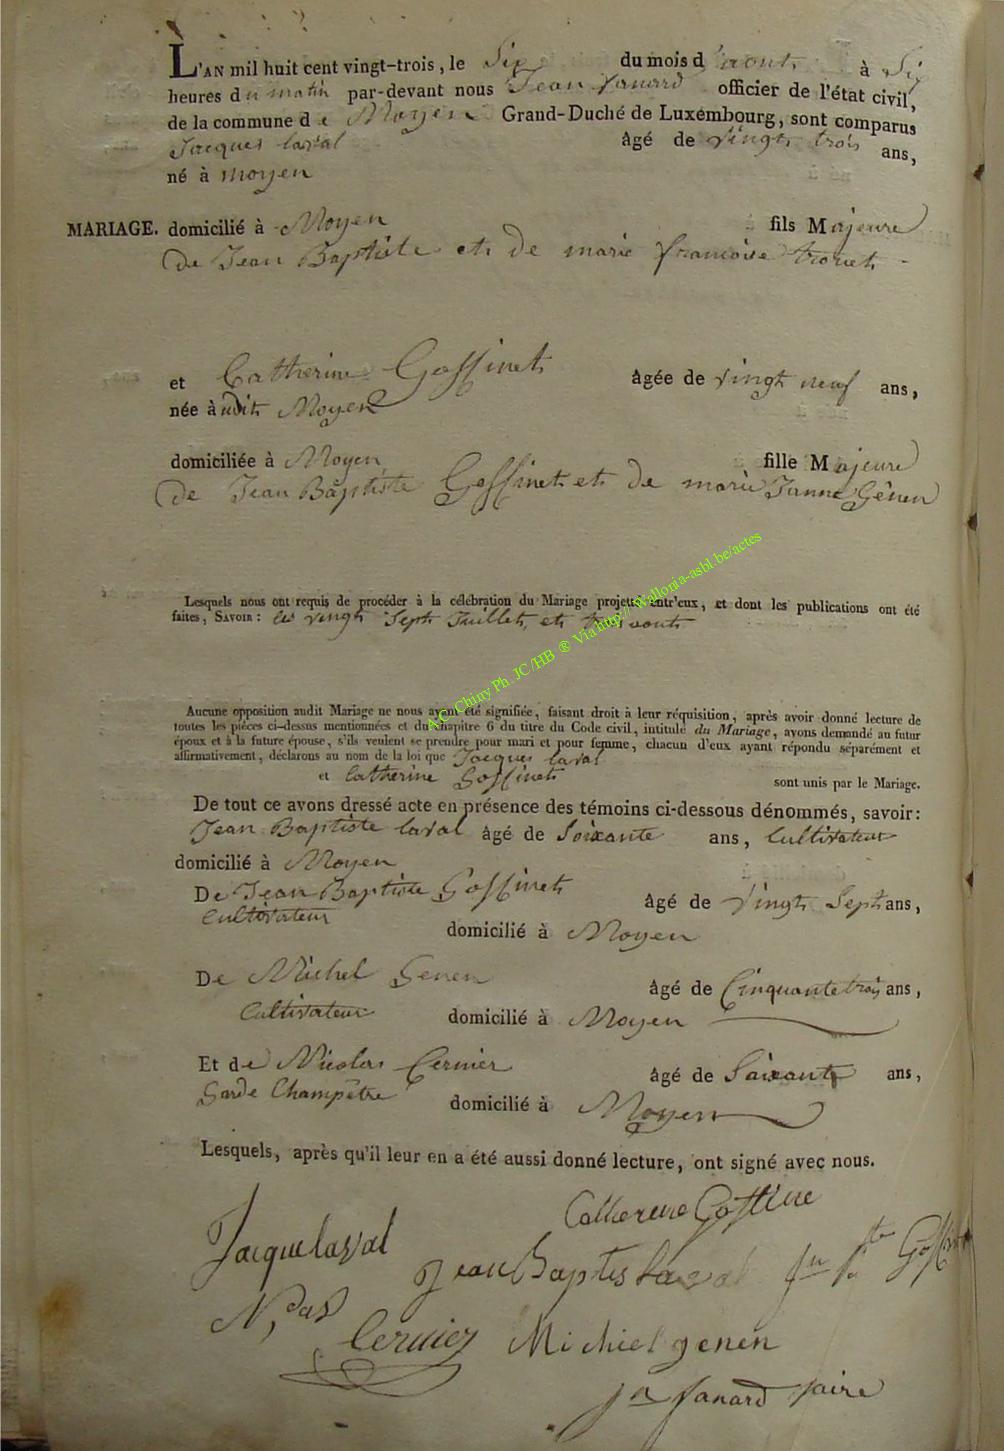 L'AN mil huit cent vingt-trois, le Six du mois d'aout à Six
heures du matin par-devant nous Jean fanard officier de l'état civil,
de la commune de Moyen Grand-Duché de Luxembourg, sont comparus
Jacques laval âgé de vingt trois ans,
né à moyen
MARIAGE. domicilié à Moyen fils Majeure
de Jean Baptiste et de marie francoise
et Catherine Goffinet âgée de vingt neuf ans,
née àudit Moyen
domiciliée à Moyen fille Majeure
de Jean Baptiste Goffinet et de marie Janne Gênen
Lesquels nous ont requis de procéder à la célébration du Mariage projeté entr'eux, et dont les publications ont été
faites, SAVOIR : les vingt Sept Juillet et trois aout
Aucune opposition audit Mariage ne nous ayant été signifiée, faisant droit à leur réquisition, après avoir donné lecture de
toutes les pièces ci-dessus mentionnées et du chapitre 6 du titre du Code civil, intitulé du Mariage, avons demandé au futur
époux et à la future épouse, s'ils veulent se prendre pour mari et pour femme, chacun d'eux ayant répondu séparément et
affirmativement, déclarons au nom de la loi que Jacques laval
et Catherine Goffinet sont unis par le Mariage.
De tout ce avons dressé acte en présence des témoins ci-dessous dénommés, savoir:
Jean Baptiste laval âgé de Soixante ans, Cultivateur
domicilié à Moyen
De Jean Baptiste Goffinet âgé de vingt Sept ans,
Cultivateur domicilié à Moyen
De Michel Genen âgé de Cinquante trois ans,
Cultivateur domicilié à Moyen
Et de Nicolas Cernier âgé de Soixante ans,
Garde Champêtre domicilié à Moyen
Lesquels, après qu'il leur en a été aussi donné lecture, ont signé avec nous.
Catherine Goffine
Jacque laval
Jean Baptis laval Jn Bte Goffinet
Cernier Michiel genen
Jn fanard maire
A.C. Chiny Ph. JC/HB ® Via http://Wallonia-asbl.be/actes